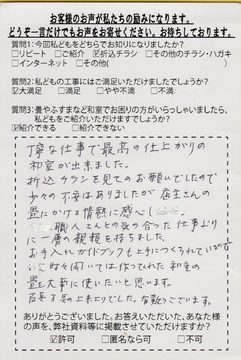 お客様のお声が私たちの励みになります。
どうぞ一言だけでもお声をお寄せください。お待ちしております。
質問1:今回私どもをどちらでお知りになりましたか?
□リピート □ご紹介 ☑折込チラシ □その他のチラシ・ハガキ
□インターネット □その他( )
質問2:私どもの工事にはご満足いただけましたでしょうか?
☑大満足 □満足 □やや不満 □不満
質問3:畳やふすまなど和室でお困りの方がいらっしゃいましたら、
私どもをご紹介いただけますでしょうか?
☑紹介できる □紹介できない
丁寧な仕事で最高の仕上がりの
和室が出来ました。
折込チラシを見てのお願いでしたので
少々の不安はありましたが店主さんの
畳にかける情熱に感心し
職人さんとの息の合った仕事ぶり
に一層の親頼を持ちました。
お手入れガイドブックも上手につくられているので
時々開いては作っていただいた和室の
畳を大事に使いたいと思います。
有難うございます。
ありがとうございました。お答えいただいた、あなた様
の声を、弊社資料等に掲載させていただけますか?
☑許可 □匿名なら可 □不可